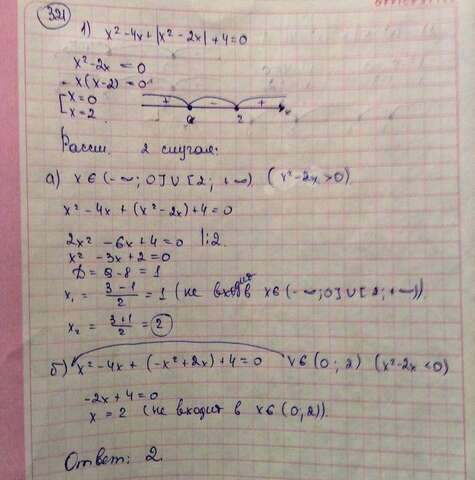 321
1) x²-4x+|x²-2x|+4=0
x²-2x = 0
x(x-2)=0
[x=0
x=2
+ - +
0 2 x
Рассм. 2 случая:
а) x∈(-∞;0]∪[2;+∞) (x²-2x≥0)
x²-4x+(x²-2x)+4=0
2x²-6x+4=0 |:2
x²-3x+2=0
D=9-8=1
x₁ = (3-1)/2 = 1 (не входит в x∈(-∞;0]∪[2;+∞))
x₂ = (3+1)/2 = 2
б) x²-4x+(-x²+2x)+4=0 x∈(0;2) (x²-2x<0)
-2x+4=0
x=2 (не входит в x∈(0;2)).
Ответ: 2.